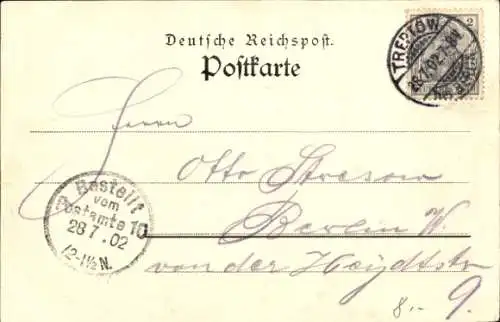 Deutsche Reichspost.
Postkarte
2
TREPTOW
28.7.02.7-8V.
Herrn
Otto Stresow
Berlin W.
von der Heydtstr
9.
Bestellt
vom
Postamte 10
28 7. 02
12-1½ N.
8.-